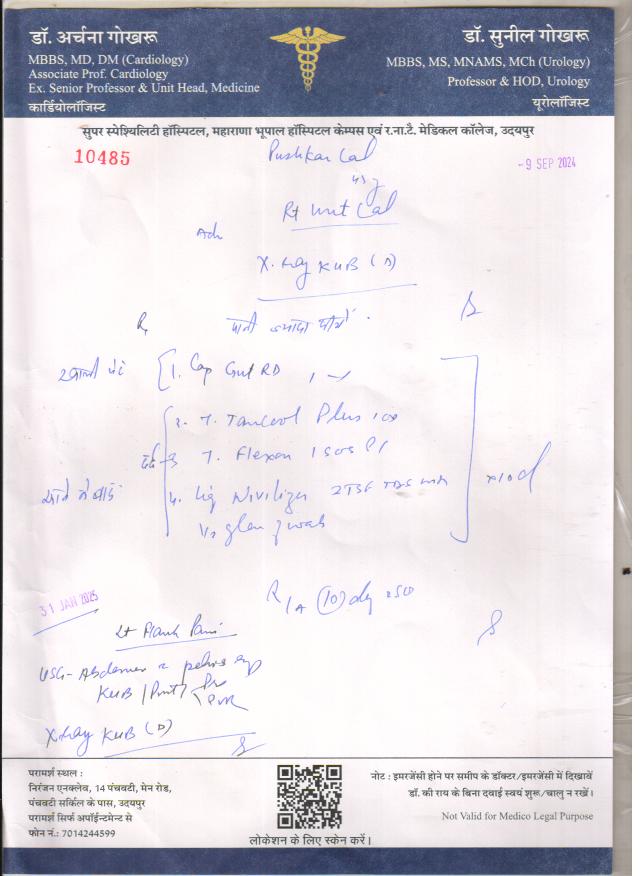 डॉ. अर्चना गोखरू
MBBS, MD, DM (Cardiology)
Associate Prof. Cardiology
Ex. Senior Professor & Unit Head, Medicine
कार्डियोलॉजिस्ट
डॉ. सुनील गोखरू
MBBS, MS, MNAMS, MCh (Urology)
Professor & HOD, Urology
यूरोलॉजिस्ट
सुपर स्पेश्यिलिटी हॉस्पिटल, महाराणा भूपाल हॉस्पिटल केम्पस एवं र.ना.टै. मेडिकल कॉलेज, उदयपुर
10485
Pushkar Lal
- 9 SEP 2024
45 y
Rt
Adv
X-ray KUB (D)
Rx
पानी ज्यादा पीयें.
खाली पेट
1. Cap RD
2. T. Plus
दर्द 3 T. Flexon 1 SOS
खाने के बाद
4. Liq 2TSF TDS
glass of water
x10d
R/A (10) day
31 JAN 2025
Lt Flank Pain
USG-Abdomen & pelvis
KUB
PVR
X-ray KUB (D)
परामर्श स्थल :
निरंजन एनक्लेव, 14 पंचवटी, मेन रोड,
पंचवटी सर्किल के पास, उदयपुर
परामर्श सिर्फ अपॉईन्टमेन्ट से
फोन नं.: 7014244599
लोकेशन के लिए स्केन करें।
नोट : इमरजेंसी होने पर समीप के डॉक्टर/इमरजेंसी में दिखावें
डॉ. की राय के बिना दवाई स्वयं शुरू/चालु न रखें।
Not Valid for Medico Legal Purpose